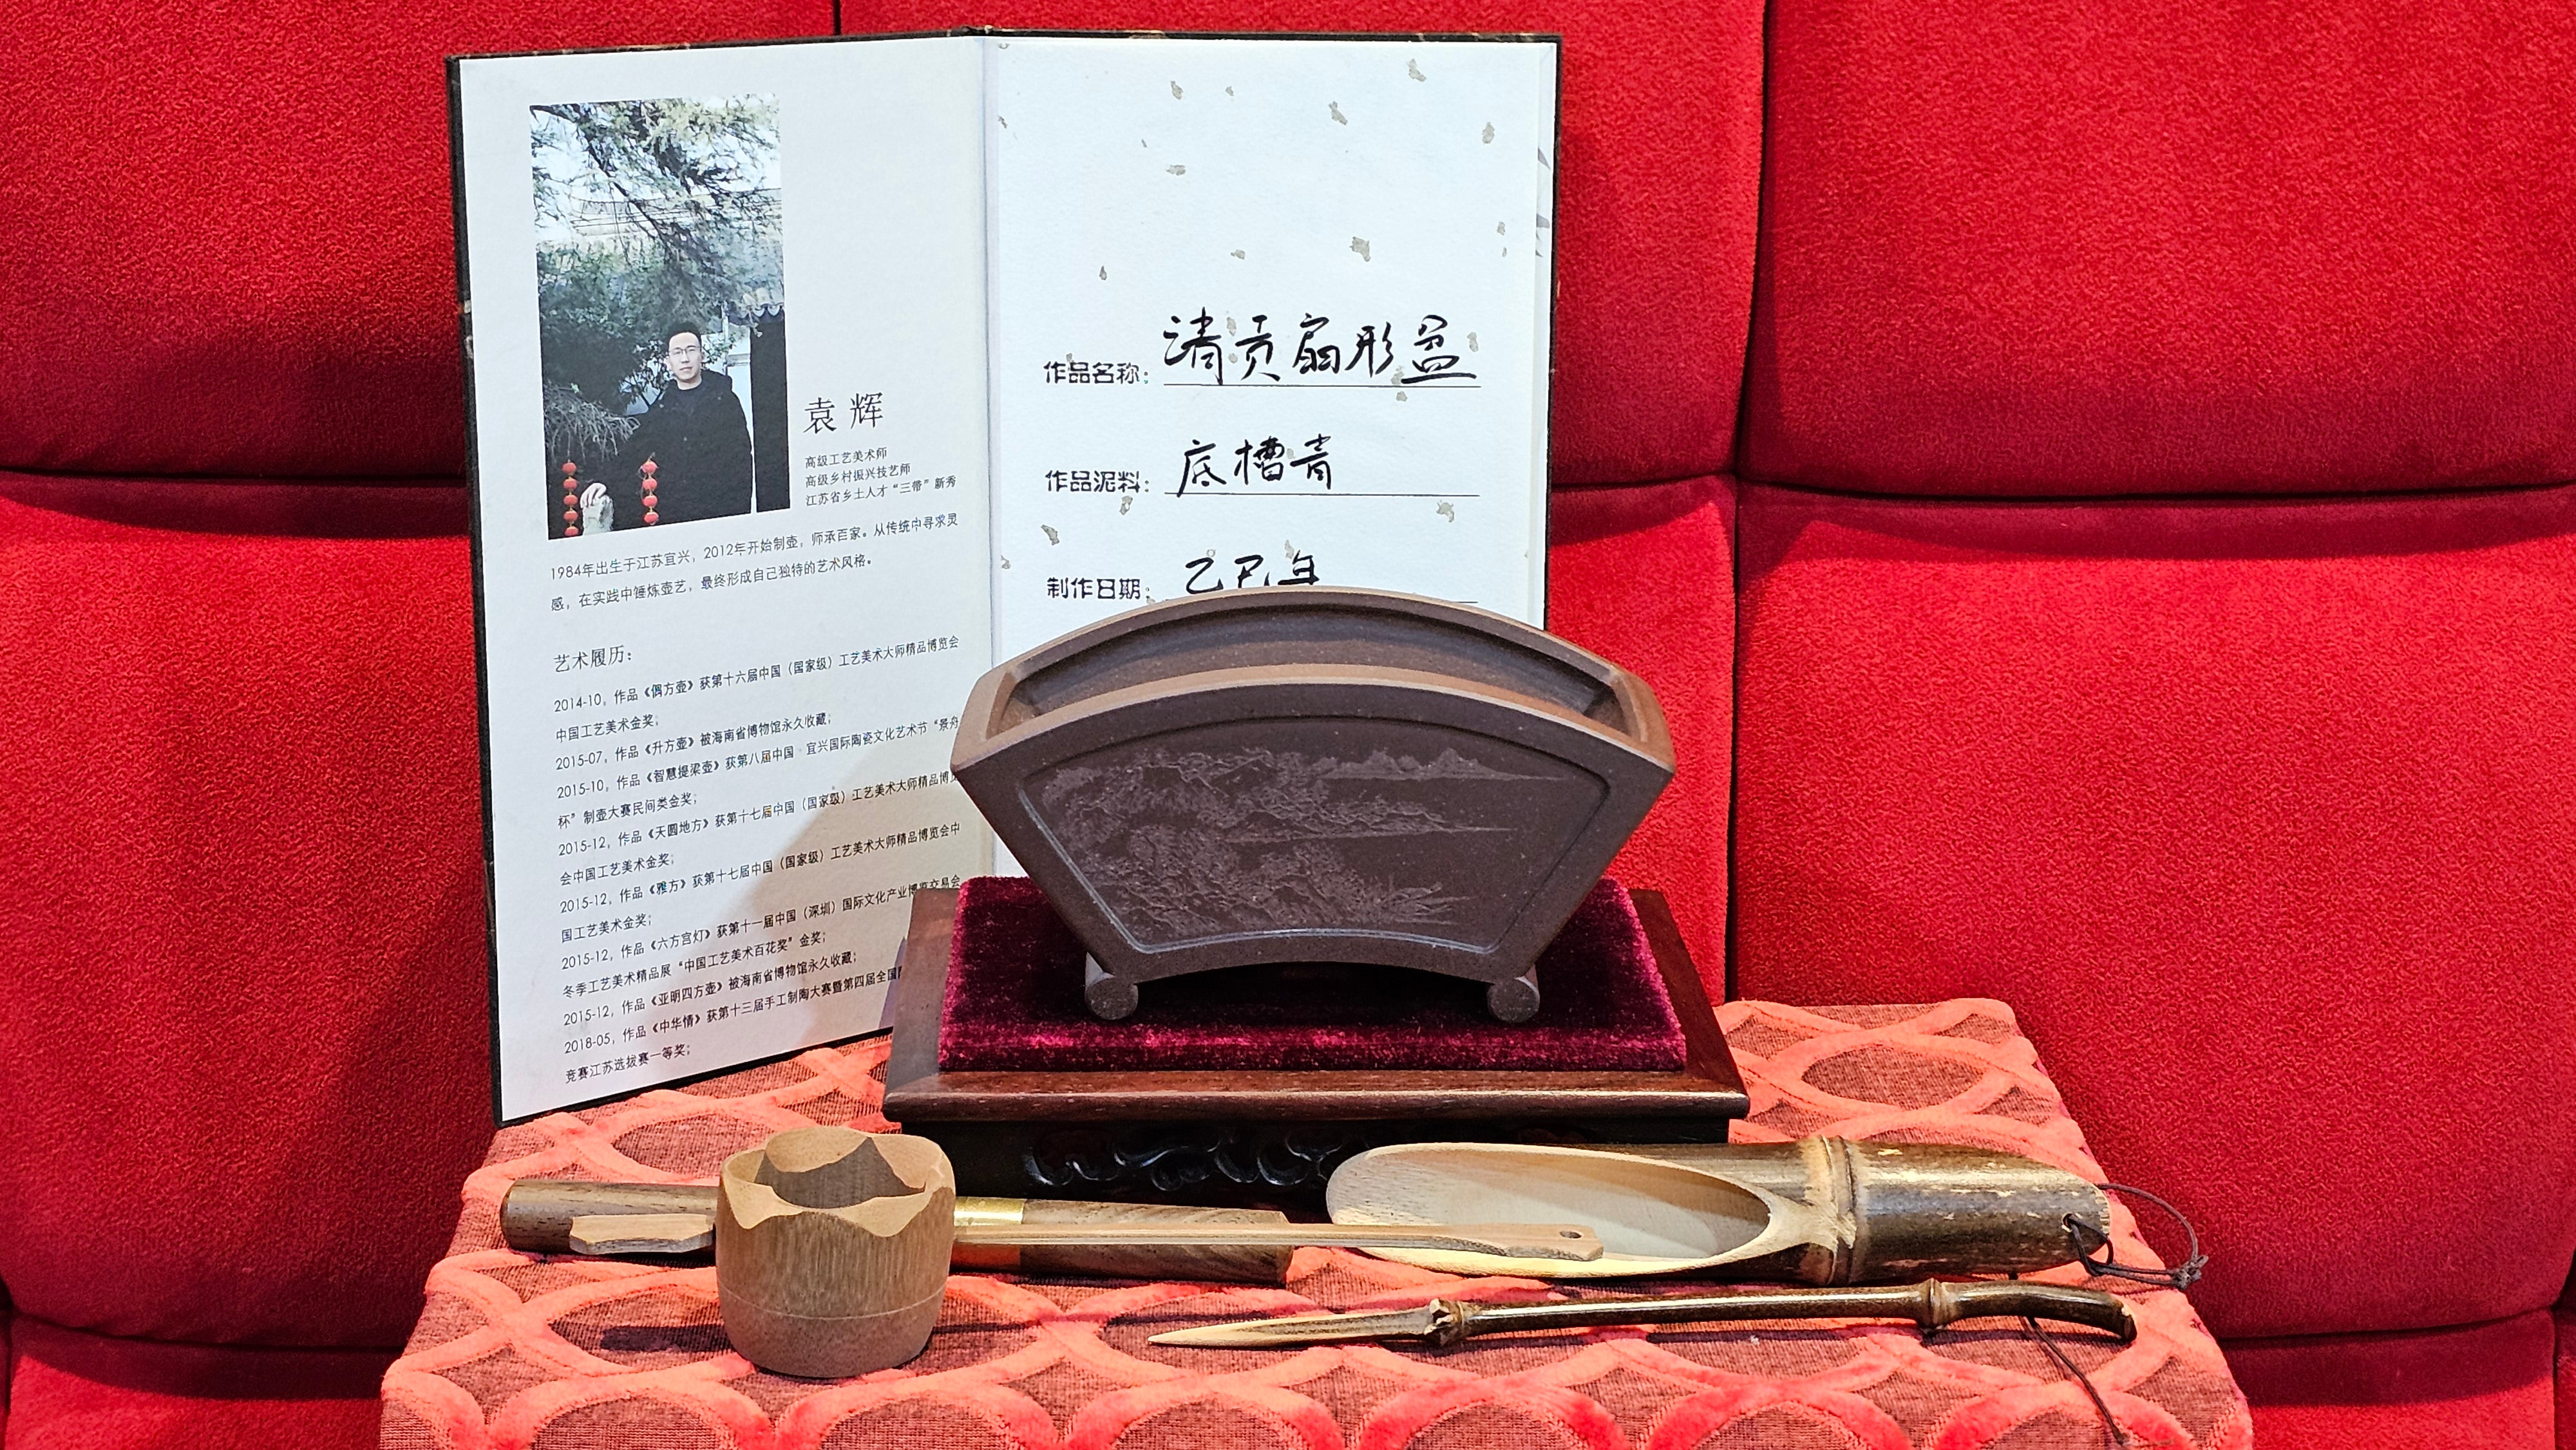 袁辉
高级工艺美术师
高级乡村振兴技艺师
江苏省乡土人才“三带”新秀
1984年出生于江苏宜兴，2012年开始制壶，师承百家。从传统中寻求灵
感，在实践中锤炼壶艺，最终形成自己独特的艺术风格。
艺术履历：
2014-10，作品《倜方壶》获第十六届中国（国家级）工艺美术大师精品博览会
中国工艺美术金奖；
2015-07，作品《升方壶》被海南省博物馆永久收藏；
2015-10，作品《智慧提梁壶》获第八届中国·宜兴国际陶瓷文化艺术节“景舟
杯”制壶大赛民间类金奖；
2015-12，作品《天圆地方》获第十七届中国（国家级）工艺美术大师精品博览
会中国工艺美术金奖；
2015-12，作品《雅方》获第十七届中国（国家级）工艺美术大师精品博览会中
国工艺美术金奖；
2015-12，作品《六方宫灯》获第十一届中国（深圳）国际文化产业博览交易会
冬季工艺美术精品展“中国工艺美术百花奖”金奖；
2015-12，作品《亚明四方壶》被海南省博物馆永久收藏；
2018-05，作品《中华情》获第十三届手工制陶大赛暨第四届全国
竞赛江苏选拔赛一等奖；
作品名称：清贡扇形盆
作品泥料：底槽青
制作日期：乙巳年